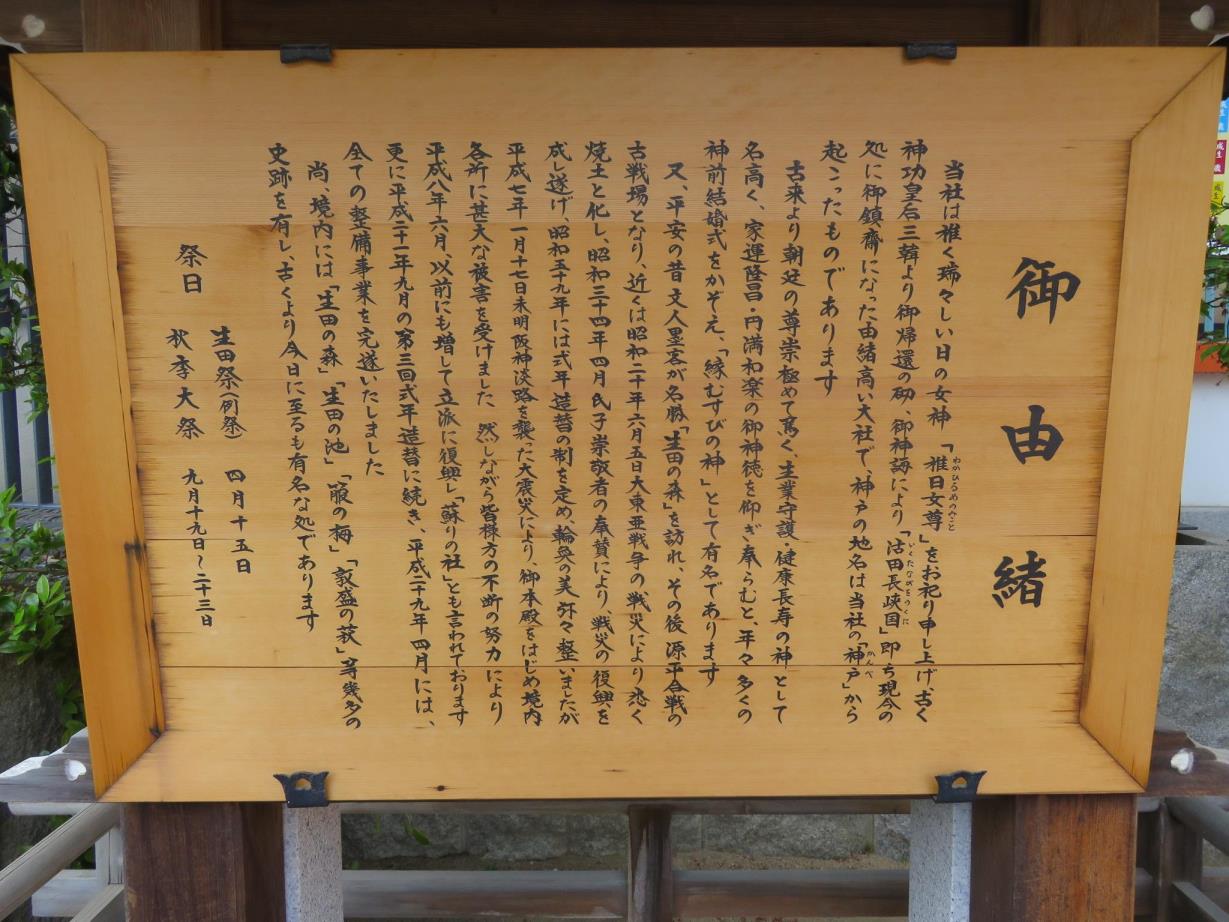 御由緒
当社は稚く瑞々しい日の女神「稚日女尊」をお祀り申し上げ、古く
わかひるめのみこと
神功皇后三韓より御帰還の砌、御神誨により「活田長峡国」即ち現今の
いくたながをのくに
処に御鎮齋になった由緒高い大社で、神戸の地名は当社の「神戸」から
かんべ
起こったものであります
古来より朝廷の尊崇極めて篤く、生業守護・健康長寿の神として
名高く、家運隆昌・円満和楽の御神徳を仰ぎ奉らむと、年々多くの
神前結婚式をかぞえ、「縁むすびの神」として有名であります
又、平安の昔文人墨客が名勝「生田の森」を訪れ、その後源平合戦の
古戦場となり、近くは昭和二十年六月五日大東亜戦争の戦災により悉く
焼土と化し、昭和三十四年四月氏子崇敬者の奉賛により、戦災の復興を
成し遂げ、昭和五十九年には式年造替の制を定め、輪奐の美弥々整いましたが
平成七年一月十七日未明阪神淡路を襲った大震災により、御本殿をはじめ境内
各所に甚大な被害を受けました 然しながら皆様方の不断の努力により
平成八年六月、以前にも増して立派に復興し「蘇りの社」とも言われております
更に平成二十一年九月の第三回式年造替に続き、平成二十九年四月には、
全ての整備事業を完遂いたしました
尚、境内には「生田の森」「生田の池」「箙の梅」「敦盛の萩」等幾多の
史跡を有し、古くより今日に至るも有名な処であります
祭日 生田祭(例祭) 四月十五日
秋季大祭 九月十九日~二十三日